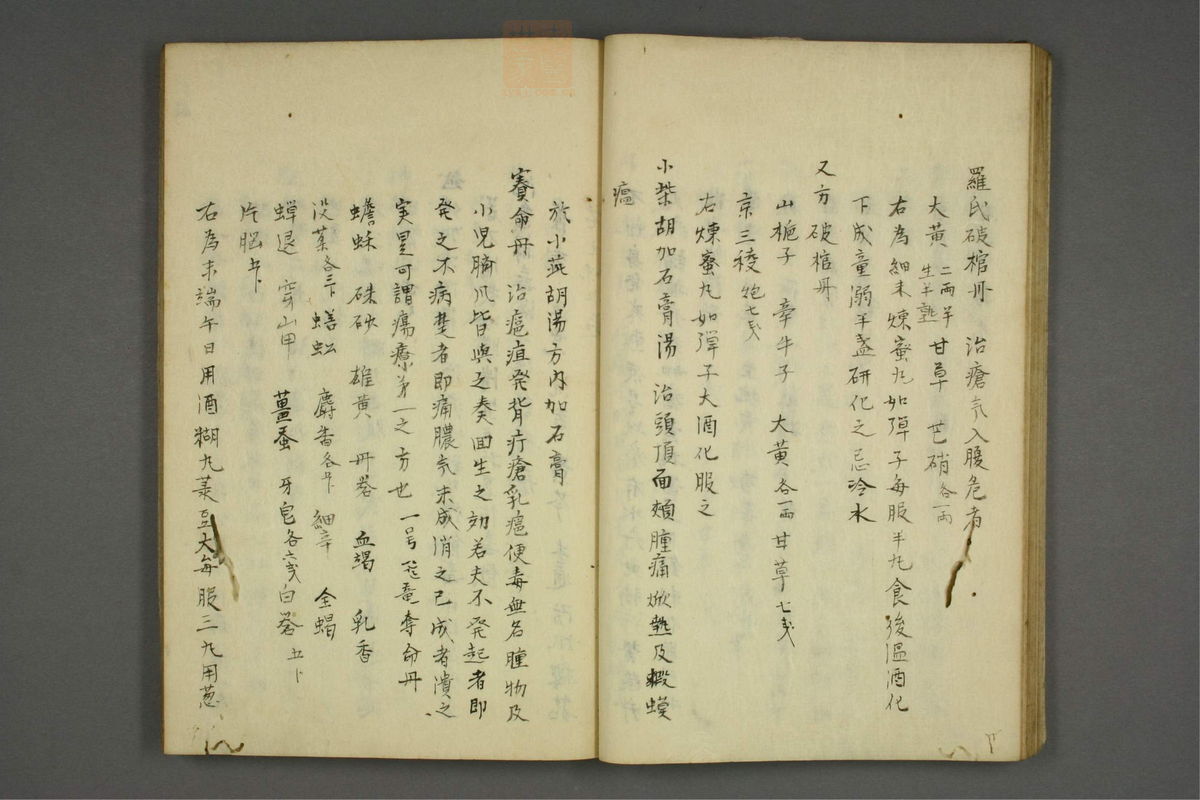 羅氏破棺丹 治瘡气入腹危者
大黄 二両半 生半熟 甘草 芒硝 各一両
右為細末煉蜜丸如弾子每服半丸食後温酒化
下成童溺半盞研化之忌冷水
又方破棺丹
山梔子 牽牛子 大黄 各一両 甘草 七戋
京三稜 炮七戋
右煉蜜丸如弾子大酒化服之
小柴胡加石膏湯 治頭頂面頰腫痛焮熱及蝦蟆
瘟
於小茈胡湯方内加石膏
賽命丹 治癰疽発背疔瘡乳癰便毒無名腫物及
小児臍风皆與之奏回生之効若夫不発起者即
発之不病楚者即痛膿气未成消之已成者潰之
実是可謂瘍療第一之方也 一号飞竜奪命丹
蟾酥 硃砂 雄黄 丹礬 血竭 乳香
没薬 各三卜 蟮蚣 麝香 各 细辛 全蝎
蟬退 穿山甲 薑蚕 牙皂 各六戋 白礬 五卜
片脳
右為末端午日用酒糊丸菉豆大每服三丸用葱